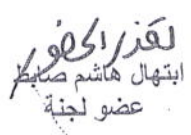 ابتهال هاشم صابط
عضو لجنة